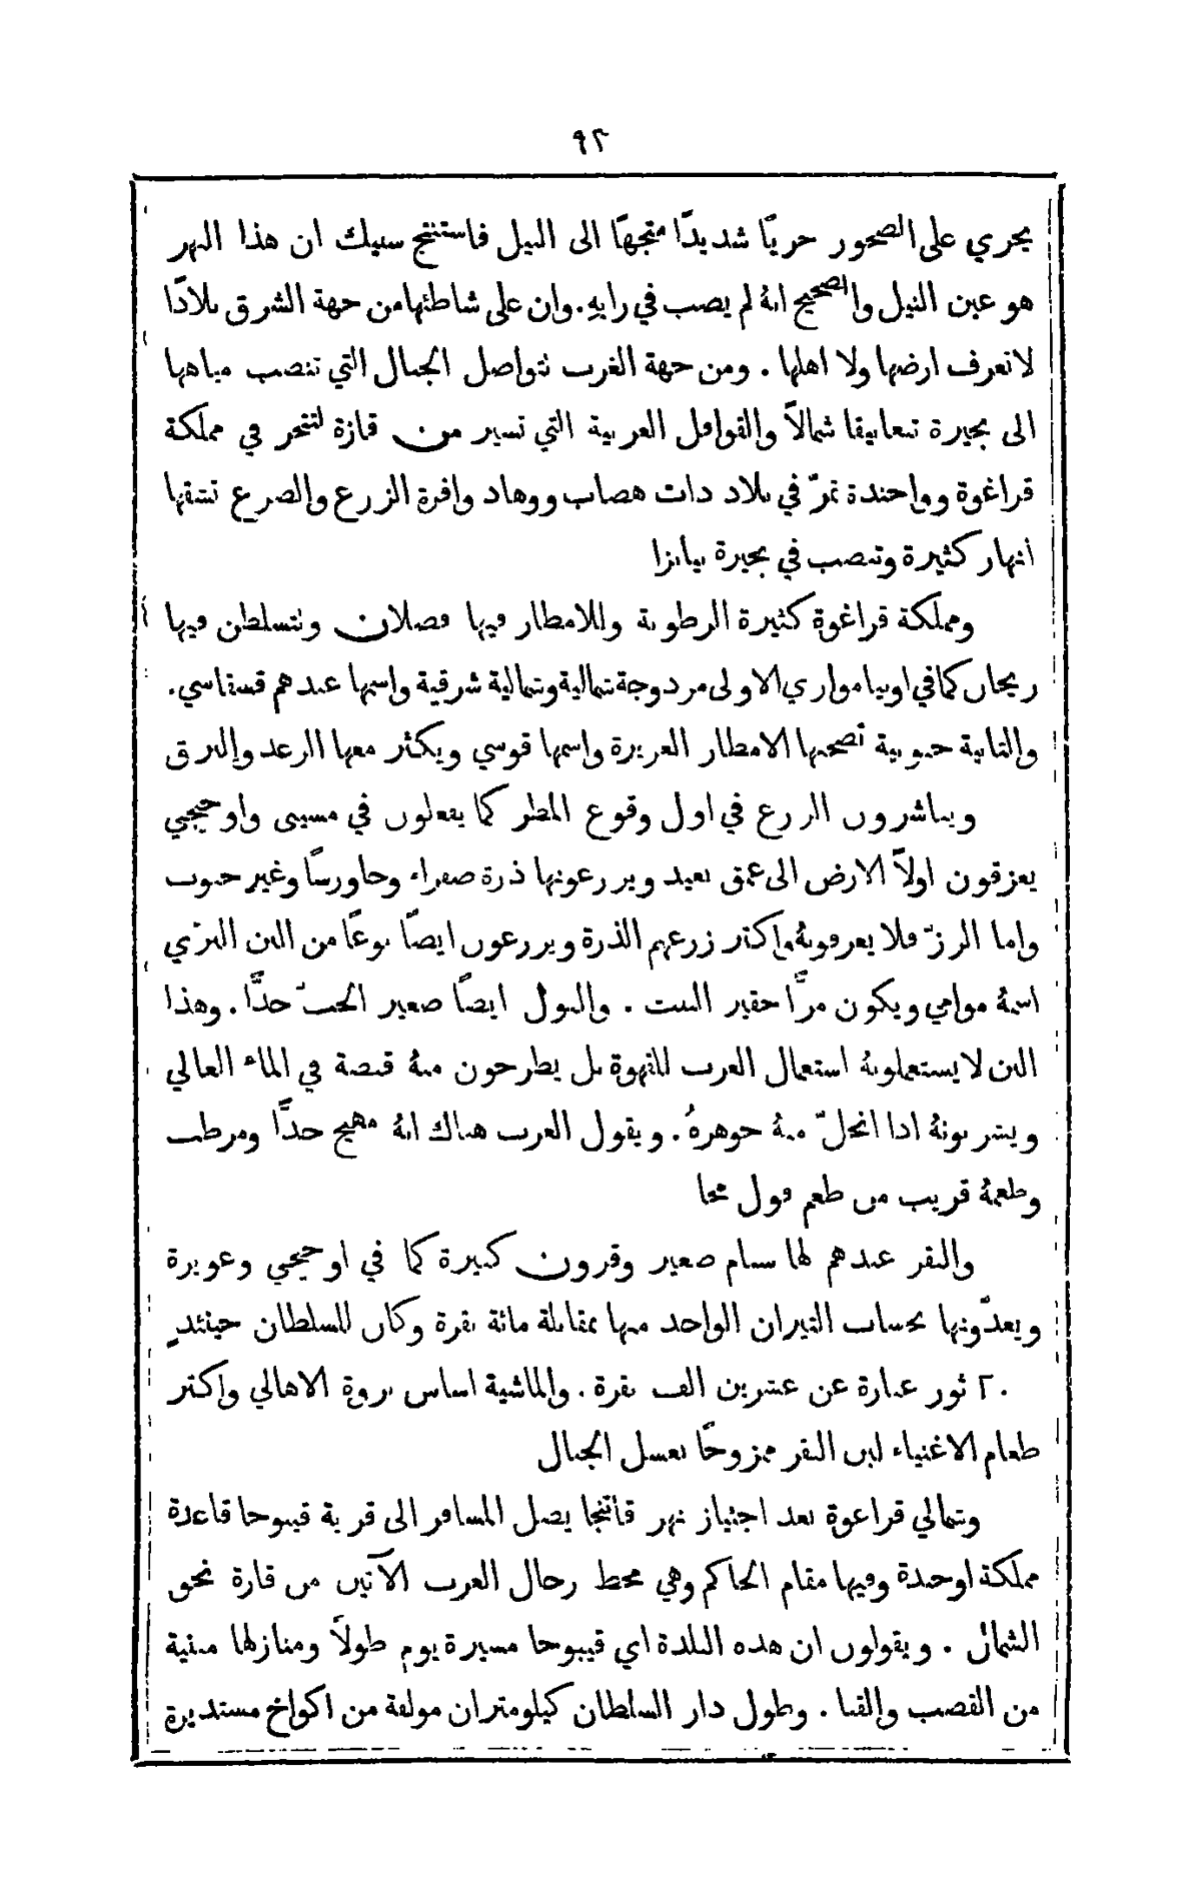 ٩٢
يجري على الصخور جريًا شديدًا متجهًا الى النيل فاستنتج سبيك ان هذا النهر
هو عين النيل والصحيح انهُ لم يصب في رايهِ . وان على شاطئها من جهة الشرق بلادًا
لا تعرف ارضها ولا اهلها . ومن جهة الغرب تتواصل الجبال التي تنصب مياهها
الى بحيرة تنغانيقا شمالاً والقوافل العربية التي تسير من قازة لتتجر في مملكة
قراغوة وواحندة تمرّ في بلاد ذات هضاب ووهاد وافرة الزرع والضرع تسقيها
انهار كثيرة وتنصب في بحيرة نيانزا
ومملكة قراغوة كثيرة الرطوبة وللامطار فيها فصلان وتتسلطن فيها
ريحان كما في اونيامواري الاولى مزدوجة شمالية وشمالية شرقية واسمها عندهم قسقاسي .
والثانية جنوبية تصحبها الامطار الغزيرة واسمها قوسي ويكثر معها الرعد والبرق
ويباشرون الزرع في اول وقوع المطر كما يفعلون في مسيني واوجيجي
يعزقون اولاً الارض الى عمق بعيد ويزرعونها ذرة صفراء وجاورسًا وغير حبوب
واما الرزّ فلا يعرفونهُ واكثر زرعهم الذرة ويزرعون ايضًا نوعًا من البن البرّي
اسمهُ موامي ويكون مرًّا حقير النبت . والبول ايضًا صغير الحبّ جدًّا . وهذا
البن لا يستعملونهُ استعمال العرب للقهوة بل يطرحون منهُ قبضة في الماء الغالي
ويشربونهُ اذا انحلّ منهُ جوهرهُ . ويقول العرب هناك انهُ مهيج جدًّا ومرطب
وطعمهُ قريب من طعم فول مخا
والبقر عندهم لها سنام صغير وقرون كبيرة كما في اوجيجي وغويرة
ويعدّونها بحساب الثيران الواحد منها بمقابلة مائة بقرة وكان للسلطان حينئذٍ
٢٠ ثور عبارة عن عشرين الف بقرة . والماشية اساس ثروة الاهالي واكثر
طعام الاغنياء لبن البقر ممزوجًا بعسل الجبال
وشمالي قراغوة بعد اجتياز نهر قاتنجا يصل المسافر الى قرية قيبوحا قاعدة
مملكة اوحندة وفيها مقام الحاكم وهي محط رحال العرب الآتين من قازة نحو
الشمال . ويقولون ان هذه البلدة اي قيبوحا مسيرة يوم طولاً ومنازلها مبنية
من القصب والقنا . وطول دار السلطان كيلومتران مولفة من اكواخ مستديرة